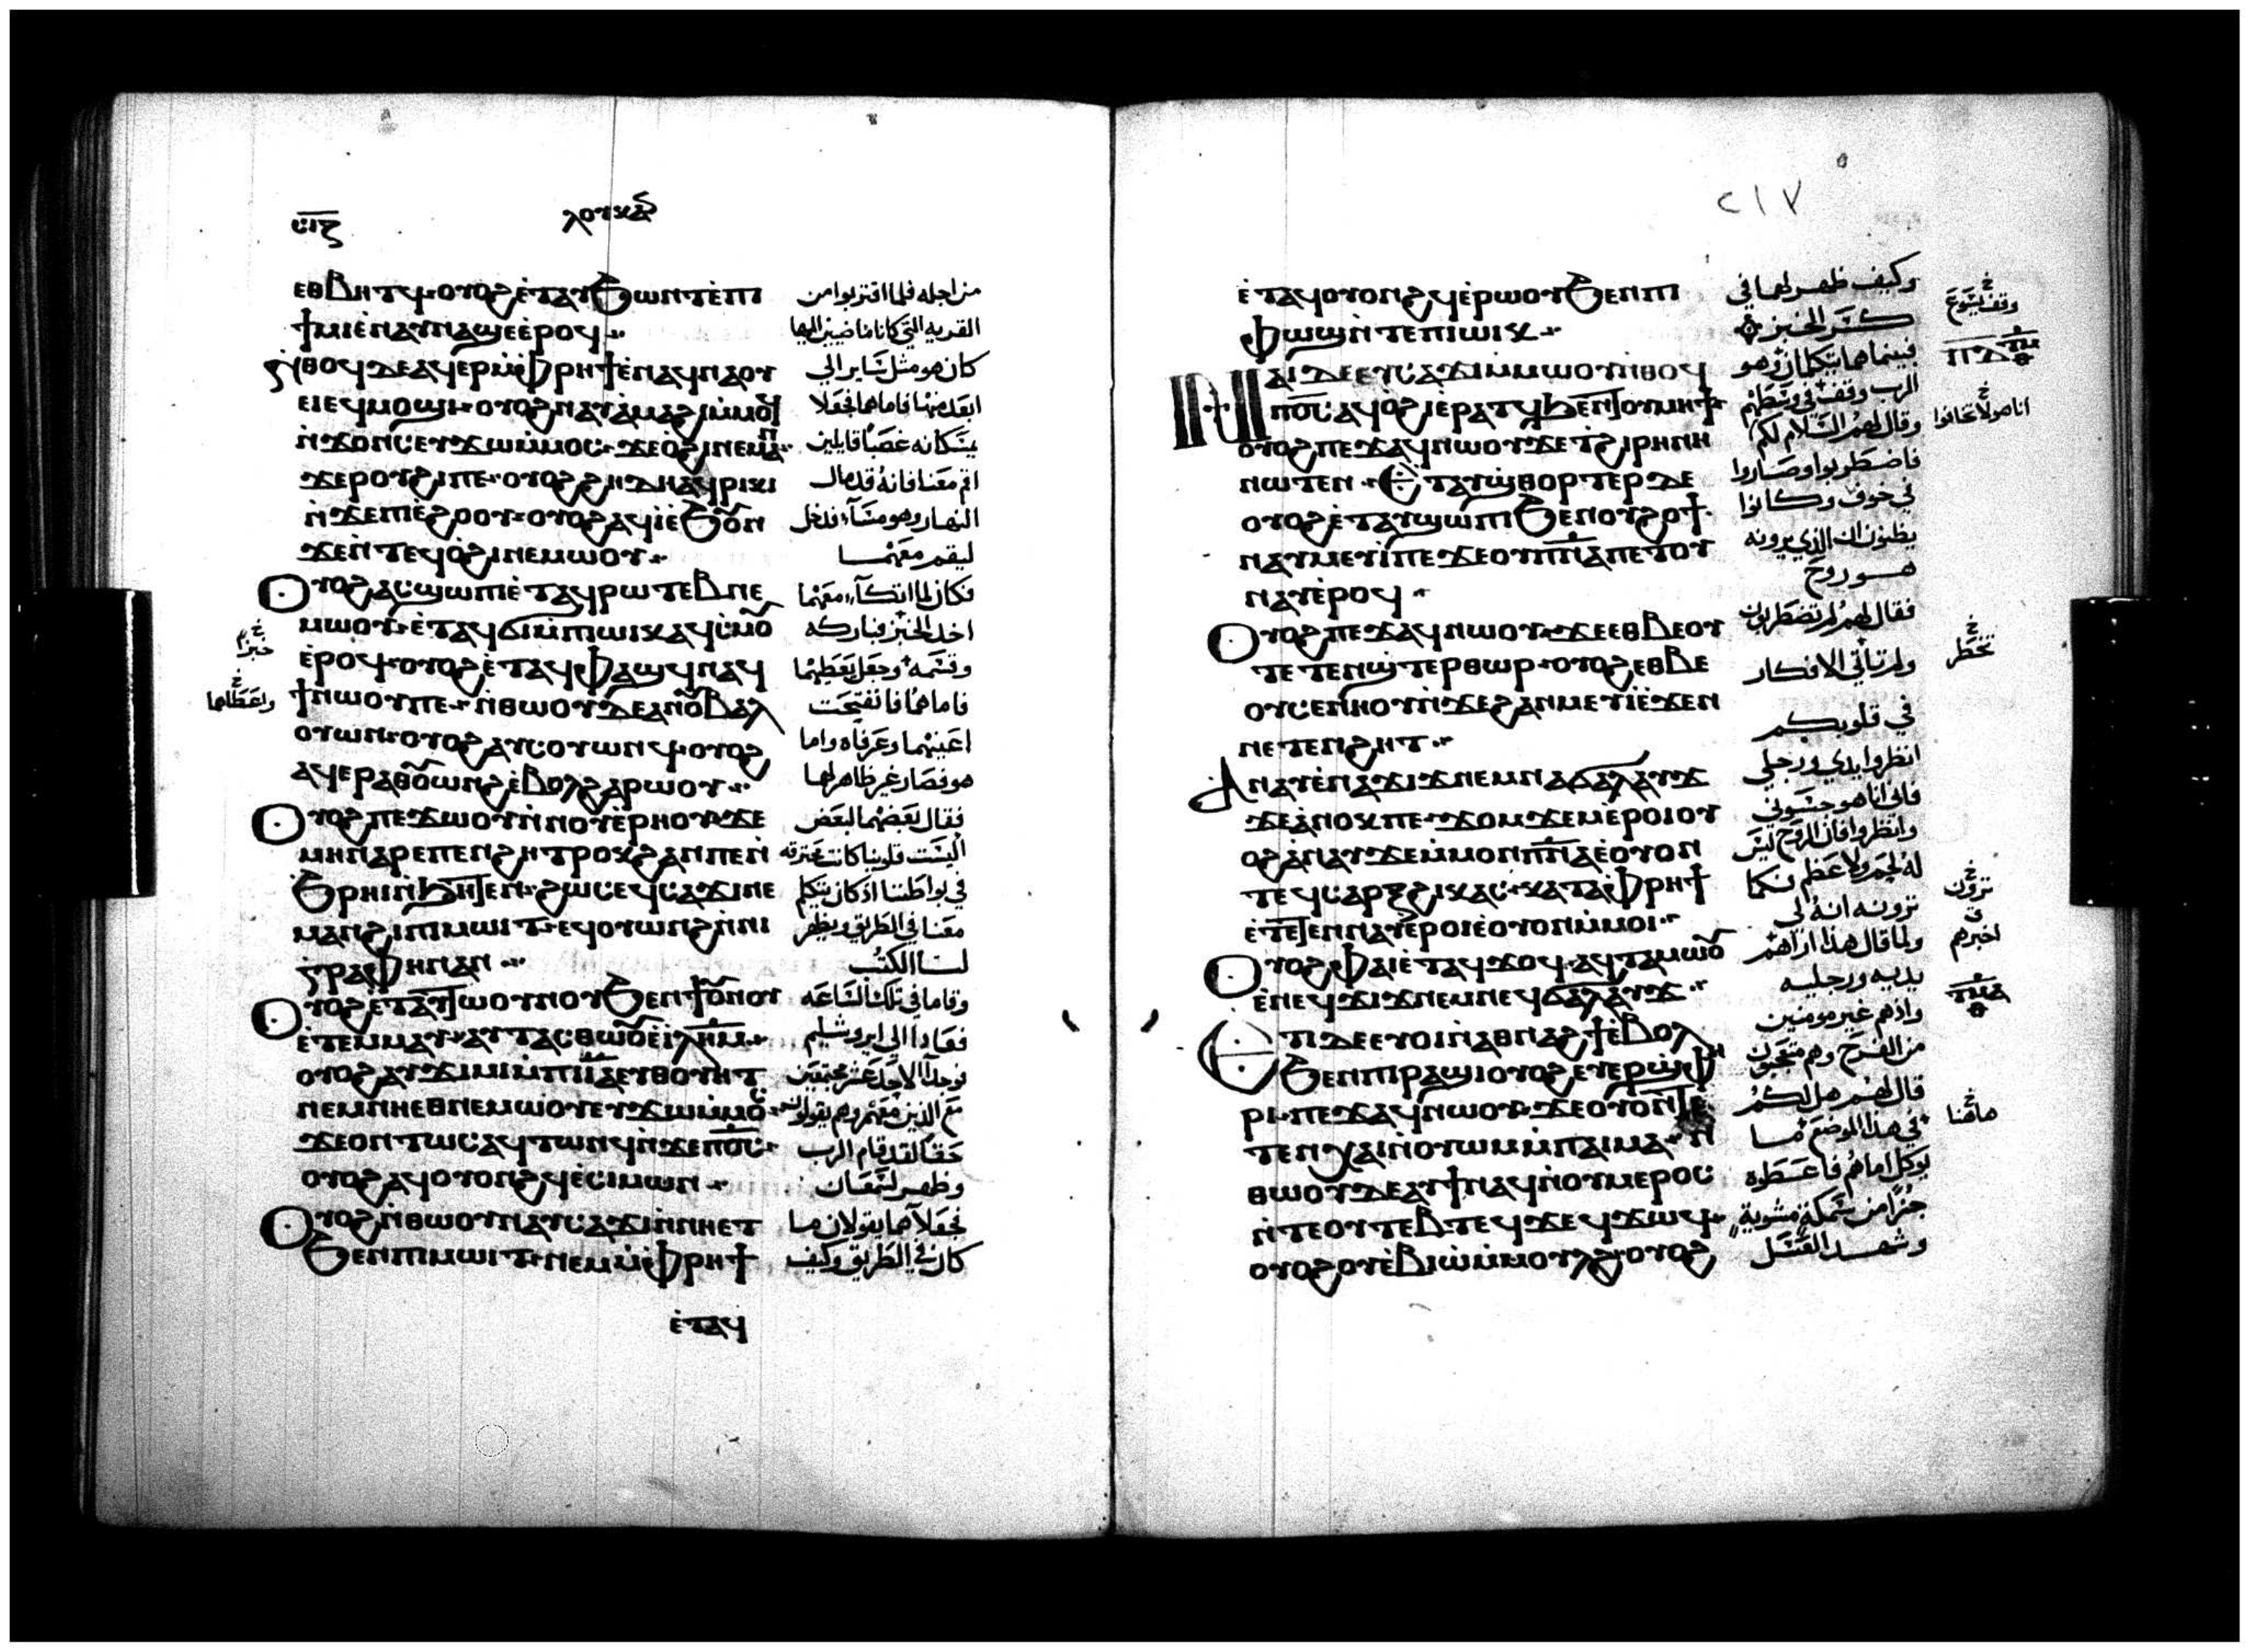 ⲥⲓⲋ ⲗⲟⲩⲕⲁⲥ
ⲉⲑⲃⲏⲧϥ· ⲟⲩⲟϩ ⲉ̀ⲧⲁⲩϧⲱⲛⲧ ⲉ̀ⲡⲓ من اجله فلما اقتربوا من
ϯⲙⲓ ⲉ̀ⲛⲁⲩⲛⲁϣⲉ ⲉ̀ⲣⲟϥ القريه التي كانا ماضيين اليها
ⲛ̀ⲑⲟϥ ⲇⲉ ⲁϥⲉⲣ ⲙ̀ⲫⲣⲏϯ ⲉ̀ⲛⲁϥⲛⲁⲟⲩ كان هو مثل ساير الي
ⲉⲓ ⲉϥⲙⲟϣⲓ· ⲟⲩⲟϩ ⲛⲁⲩⲁ̀ⲙⲁϩⲓ ⲙ̀ⲙⲟϥ ابعد منها فاما هما فجعلا
ⲛ̀ϫⲟⲛⲥ ⲉⲩϫⲱ ⲙ̀ⲙⲟⲥ· ϫⲉ ⲟ̀ϩⲓ ⲛⲉⲙⲁⲛ يمسكانه غصبا قايلين
ϫⲉ ⲣⲟⲩϩⲓ ⲡⲉ· ⲟⲩⲟϩ ϩⲏⲇⲏ ⲁϥⲣⲓⲕⲓ اقم معنا فانه قد مال
ⲛ̀ϫⲉ ⲡⲓⲉ̀ϩⲟⲟⲩ· ⲟⲩⲟϩ ⲁϥⲓ̀ ⲉ̀ϧⲟⲩⲛ النهار وهو مسآء فدخل
ϫⲉ ⲛ̀ⲧⲉϥⲟ̀ϩⲓ ⲛⲉⲙⲱⲟⲩ ليقم معهما
ⲟⲩⲟϩ ⲁⲥϣⲱⲡⲓ ⲉ̀ⲧⲁϥⲣⲱⲧⲉⲃ ⲛⲉ فكان لما اتكآء معهما
ⲙⲱⲟⲩ· ⲉ̀ⲧⲁϥϭⲓ ⲙ̀ⲡⲓⲱⲓⲕ ⲁϥⲥ̀ⲙⲟⲩ اخذ الخبز فباركه
ⲉ̀ⲣⲟϥ· ⲟⲩⲟϩ ⲉ̀ⲧⲁϥⲫⲁϣϥ ⲛⲁϥ وقسمه وجعل يعطيهما
ϯ ⲛⲱⲟⲩ ⲡⲉ· ⲛ̀ⲑⲱⲟⲩ ⲇⲉ ⲁⲛⲟⲩⲃⲁⲗ فاما هما فانفتحت
ⲟⲩⲱⲛ· ⲟⲩⲟϩ ⲁⲩⲥⲟⲩⲱⲛϥ· ⲟⲩⲟϩ اعينهما وعرفاه واما
ⲁϥⲉⲣⲁⲑⲟⲩⲱⲛϩ ⲉ̀ⲃⲟⲗ ϩⲁⲣⲱⲟⲩ هو فصار غير ظاهر لهما
ⲟⲩⲟϩ ⲡⲉϫⲱⲟⲩ ⲛ̀ⲛⲟⲩⲉⲣⲏⲟⲩ ϫⲉ فقال بعضهما لبعض
ⲙⲏ ⲛⲁⲣⲉ ⲡⲉⲛϩⲏⲧ ⲣⲟⲕϩ ⲁⲛ ⲡⲉ ⲛ̀ اليست قلوبنا كانت محترقه
ϧⲣⲏⲓ ⲛ̀ϧⲏⲧⲉⲛ· ϩⲱⲥ ⲉϥⲥⲁϫⲓ ⲛⲉ في بواطننا اذ كان يتكلم
ⲙⲁⲛ ϩⲓ ⲡⲓⲙⲱⲓⲧ· ⲉϥⲟⲩⲱⲛϩ ⲛ̀ⲛⲓ معنا في الطريق ويظهر
ⲅⲣⲁⲫⲏ ⲛⲁⲛ لنا الكتب
ⲟⲩⲟϩ ⲉ̀ⲧⲁⲩⲧⲱⲟⲩⲛⲟⲩ ϧⲉⲛ ϯⲟⲩⲛⲟⲩ وقاما في تلك الساعه
ⲉ̀ⲧⲉⲙⲙⲁⲩ· ⲁⲩⲧⲁⲥⲑⲱⲟⲩ ⲉ̀ⲓⲗⲏⲙ فعادا الي ايروشليم
ⲟⲩⲟϩ ⲁⲩϫⲓⲙⲓ ⲙ̀ⲡⲓⲓⲁ ⲉⲩⲑⲟⲩⲏⲧ فوجدا الاحد عشر مجتمعين
ⲛⲉⲙ ⲛⲏⲉⲑⲛⲉⲙⲱⲟⲩ ⲉⲩϫⲱ ⲙ̀ⲙⲟⲥ مع الذين معهم وهم يقولون
ϫⲉ ⲟⲛⲧⲱⲥ ⲁϥⲧⲱⲛϥ ⲛ̀ϫⲉ ⲡⲟⲥ حقا لقد قام الرب
ⲟⲩⲟϩ ⲁϥⲟⲩⲟⲛϩϥ ⲉ̀ⲥⲓⲙⲱⲛ وظهر لسمعان
ⲟⲩⲟϩ ⲛ̀ⲑⲱⲟⲩ ⲛⲁⲩⲥⲁϫⲓ ⲛ̀ⲛⲏⲉⲧ فجعلا هما يقولان ما
ϧⲉⲛ ⲡⲓⲙⲱⲓⲧ· ⲛⲉⲙ ⲙ̀ⲫⲣⲏϯ كان في الطريق وكيف
ⲉ̀ⲧⲁϥ
خبزا
واعطاهما
٢١٧
ⲉ̀ⲧⲁϥⲟⲩⲟⲛϩϥ ⲉ̀ⲣⲱⲟⲩ ϧⲉⲛ ⲡⲓ وكيف ظهر لهما في
ⲫⲱϣ ⲛ̀ⲧⲉ ⲡⲓⲱⲓⲕ كسر الخبز
ⲛⲁⲓ ⲇⲉ ⲉⲩⲥⲁϫⲓ ⲙ̀ⲙⲱⲟⲩ ⲛ̀ⲑⲟϥ فبينما هما يتكلمان وهو
ⲡⲟⲥ ⲁϥⲟϩⲓ ⲉ̀ⲣⲁⲧϥ ϧⲉⲛ ⲧⲟⲩⲙⲏϯ الرب وقف في وسطهم
ⲟⲩⲟϩ ⲡⲉϫⲁϥ ⲛⲱⲟⲩ ϫⲉ ⲧ̀ϩⲓⲣⲏⲛⲏ وقال لهم السلام لكم
ⲛⲱⲧⲉⲛ· ⲉ̀ⲧⲁⲩϣⲑⲟⲣⲧⲉⲣ ⲇⲉ فاضطربوا وصاروا
ⲟⲩⲟϩ ⲉ̀ⲧⲁⲩϣⲱⲡⲓ ϧⲉⲛ ⲟⲩϩⲟϯ في خوف وكانوا
ⲛⲁⲩⲙⲉⲩⲓ̀ ⲡⲉ ϫⲉ ⲟⲩⲡⲛⲁ ⲡⲉⲧⲟⲩ يظنون ان الذي يرونه
ⲛⲁⲩ ⲉ̀ⲣⲟϥ هو روح
ⲟⲩⲟϩ ⲡⲉϫⲁϥ ⲛⲱⲟⲩ· ϫⲉ ⲉⲑⲃⲉ ⲟⲩ فقال لهم لم تضطربون
ⲧⲉⲧⲉⲛϣ̀ⲧⲉⲣⲑⲱⲣ· ⲟⲩⲟϩ ⲉⲑⲃⲉ ولم تاتي الافكار
ⲟⲩ ⲥⲉⲛⲏⲟⲩ ⲛ̀ϫⲉ ϩⲁⲛⲙⲉⲩⲓ̀ ⲉ̀ϫⲉⲛ في قلوبكم
ⲛⲉⲧⲉⲛϩⲏⲧ
ⲁⲛⲁⲩ ⲉ̀ⲛⲁϫⲓϫ ⲛⲉⲙ ⲛⲁϭⲁⲗⲁⲩϫ انظروا يدي ورجلي
ϫⲉ ⲁ̀ⲛⲟⲕ ⲡⲉ· ϫⲟⲙϫⲉⲙ ⲉ̀ⲣⲟⲓ ⲟⲩ فاني انا هو جسوني
ⲟϩ ⲁ̀ⲛⲁⲩ ϫⲉ ⲙ̀ⲙⲟⲛ ⲡⲛⲁ ⲉ̀ⲟⲩⲟⲛ وانظروا فان الروح ليس
ⲧⲉϥ ⲥⲁⲣⲝ ϩⲓ ⲕⲁⲥ· ⲕⲁⲧⲁ ⲫⲣⲏϯ له لحم ولا عظم كما
ⲉ̀ⲧⲉⲧⲉⲛⲛⲁⲩ ⲉ̀ⲣⲟⲓ ⲉ̀ⲟⲩⲟⲛ ⲙ̀ⲙⲟⲓ ترونه انه لي
ⲟⲩⲟϩ ⲫⲁⲓ ⲉ̀ⲧⲁϥϫⲟϥ· ⲁϥⲧⲁⲙⲱⲟⲩ ولما قال هذا اراهم
ⲉ̀ⲛⲉϥϫⲓϫ ⲛⲉⲙ ⲛⲉϥϭⲁⲗⲁⲩϫ يديه ورجليه
ⲉ̀ⲧⲓ ⲇⲉ ⲉⲩⲟⲓ ⲛ̀ⲁⲑⲛⲁϩϯ ⲉ̀ⲃⲟⲗ واذ هم غير مومنين
ϧⲉⲛ ⲡⲓⲣⲁϣⲓ ⲟⲩⲟϩ ⲉⲩⲉⲣϣ̀ⲫⲏ من الفرح وهم متعجبون
ⲣⲓ· ⲡⲉϫⲁϥ ⲛⲱⲟⲩ· ϫⲉ ⲟⲩⲟⲛⲧⲉ قال لهم هل لكم
ⲧⲉⲛ ⲭⲁⲓ ⲛ̀ⲟⲩⲱⲙ ⲙ̀ⲡⲁⲓⲙⲁ· ⲛ̀ في هذا الموضع ما
ⲑⲱⲟⲩ ⲇⲉ ⲁⲩϯ ⲛⲁϥ ⲛ̀ⲟⲩⲙⲉⲣⲟⲥ يوكل اما هم فاعطوه
ⲛ̀ⲧⲉ ⲟⲩⲧⲉⲃⲧ ⲉϥϫⲉϥϫⲱϥ جزا من سمكة مشوية
ⲟⲩⲟϩ ⲟⲩⲉ̀ⲃⲓⲱ ⲙ̀ⲙⲟⲩⲗϩ· ⲟⲩⲟϩ وشهد العسل
وقف يسوع
انا هو لا تخافوا
تخطر
ترون
اخبرهم
هاهنا